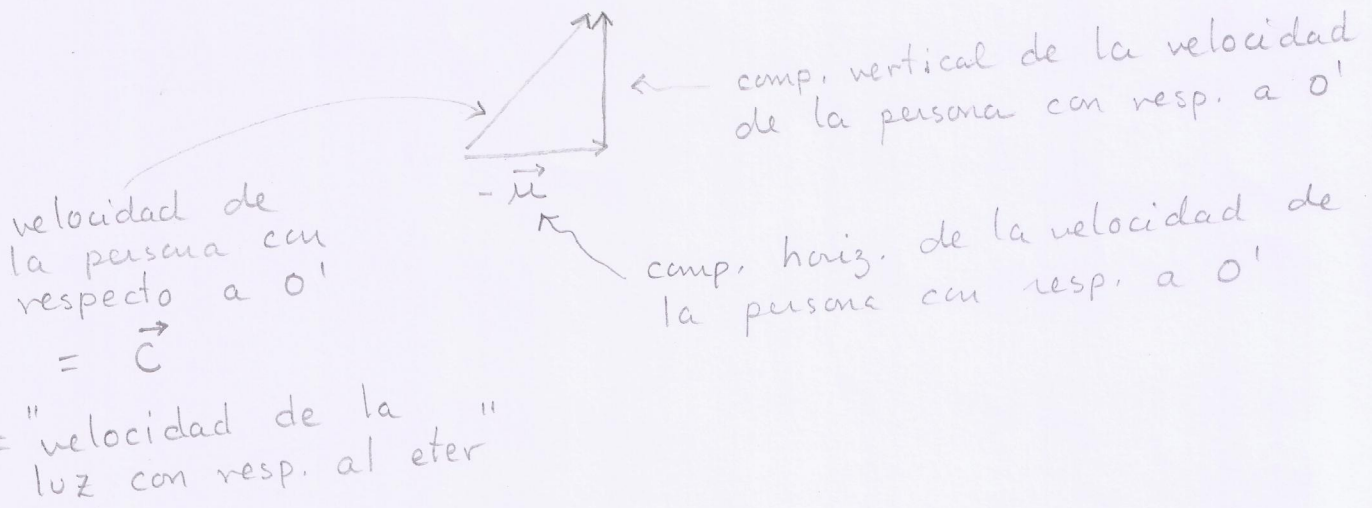 comp. vertical de la velocidad
de la persona con resp. a O'
-u⃗
velocidad de
la persona con
respecto a O'
= c⃗
= "velocidad de la
luz con resp. al eter"
comp. horiz. de la velocidad de
la persona con resp. a O'